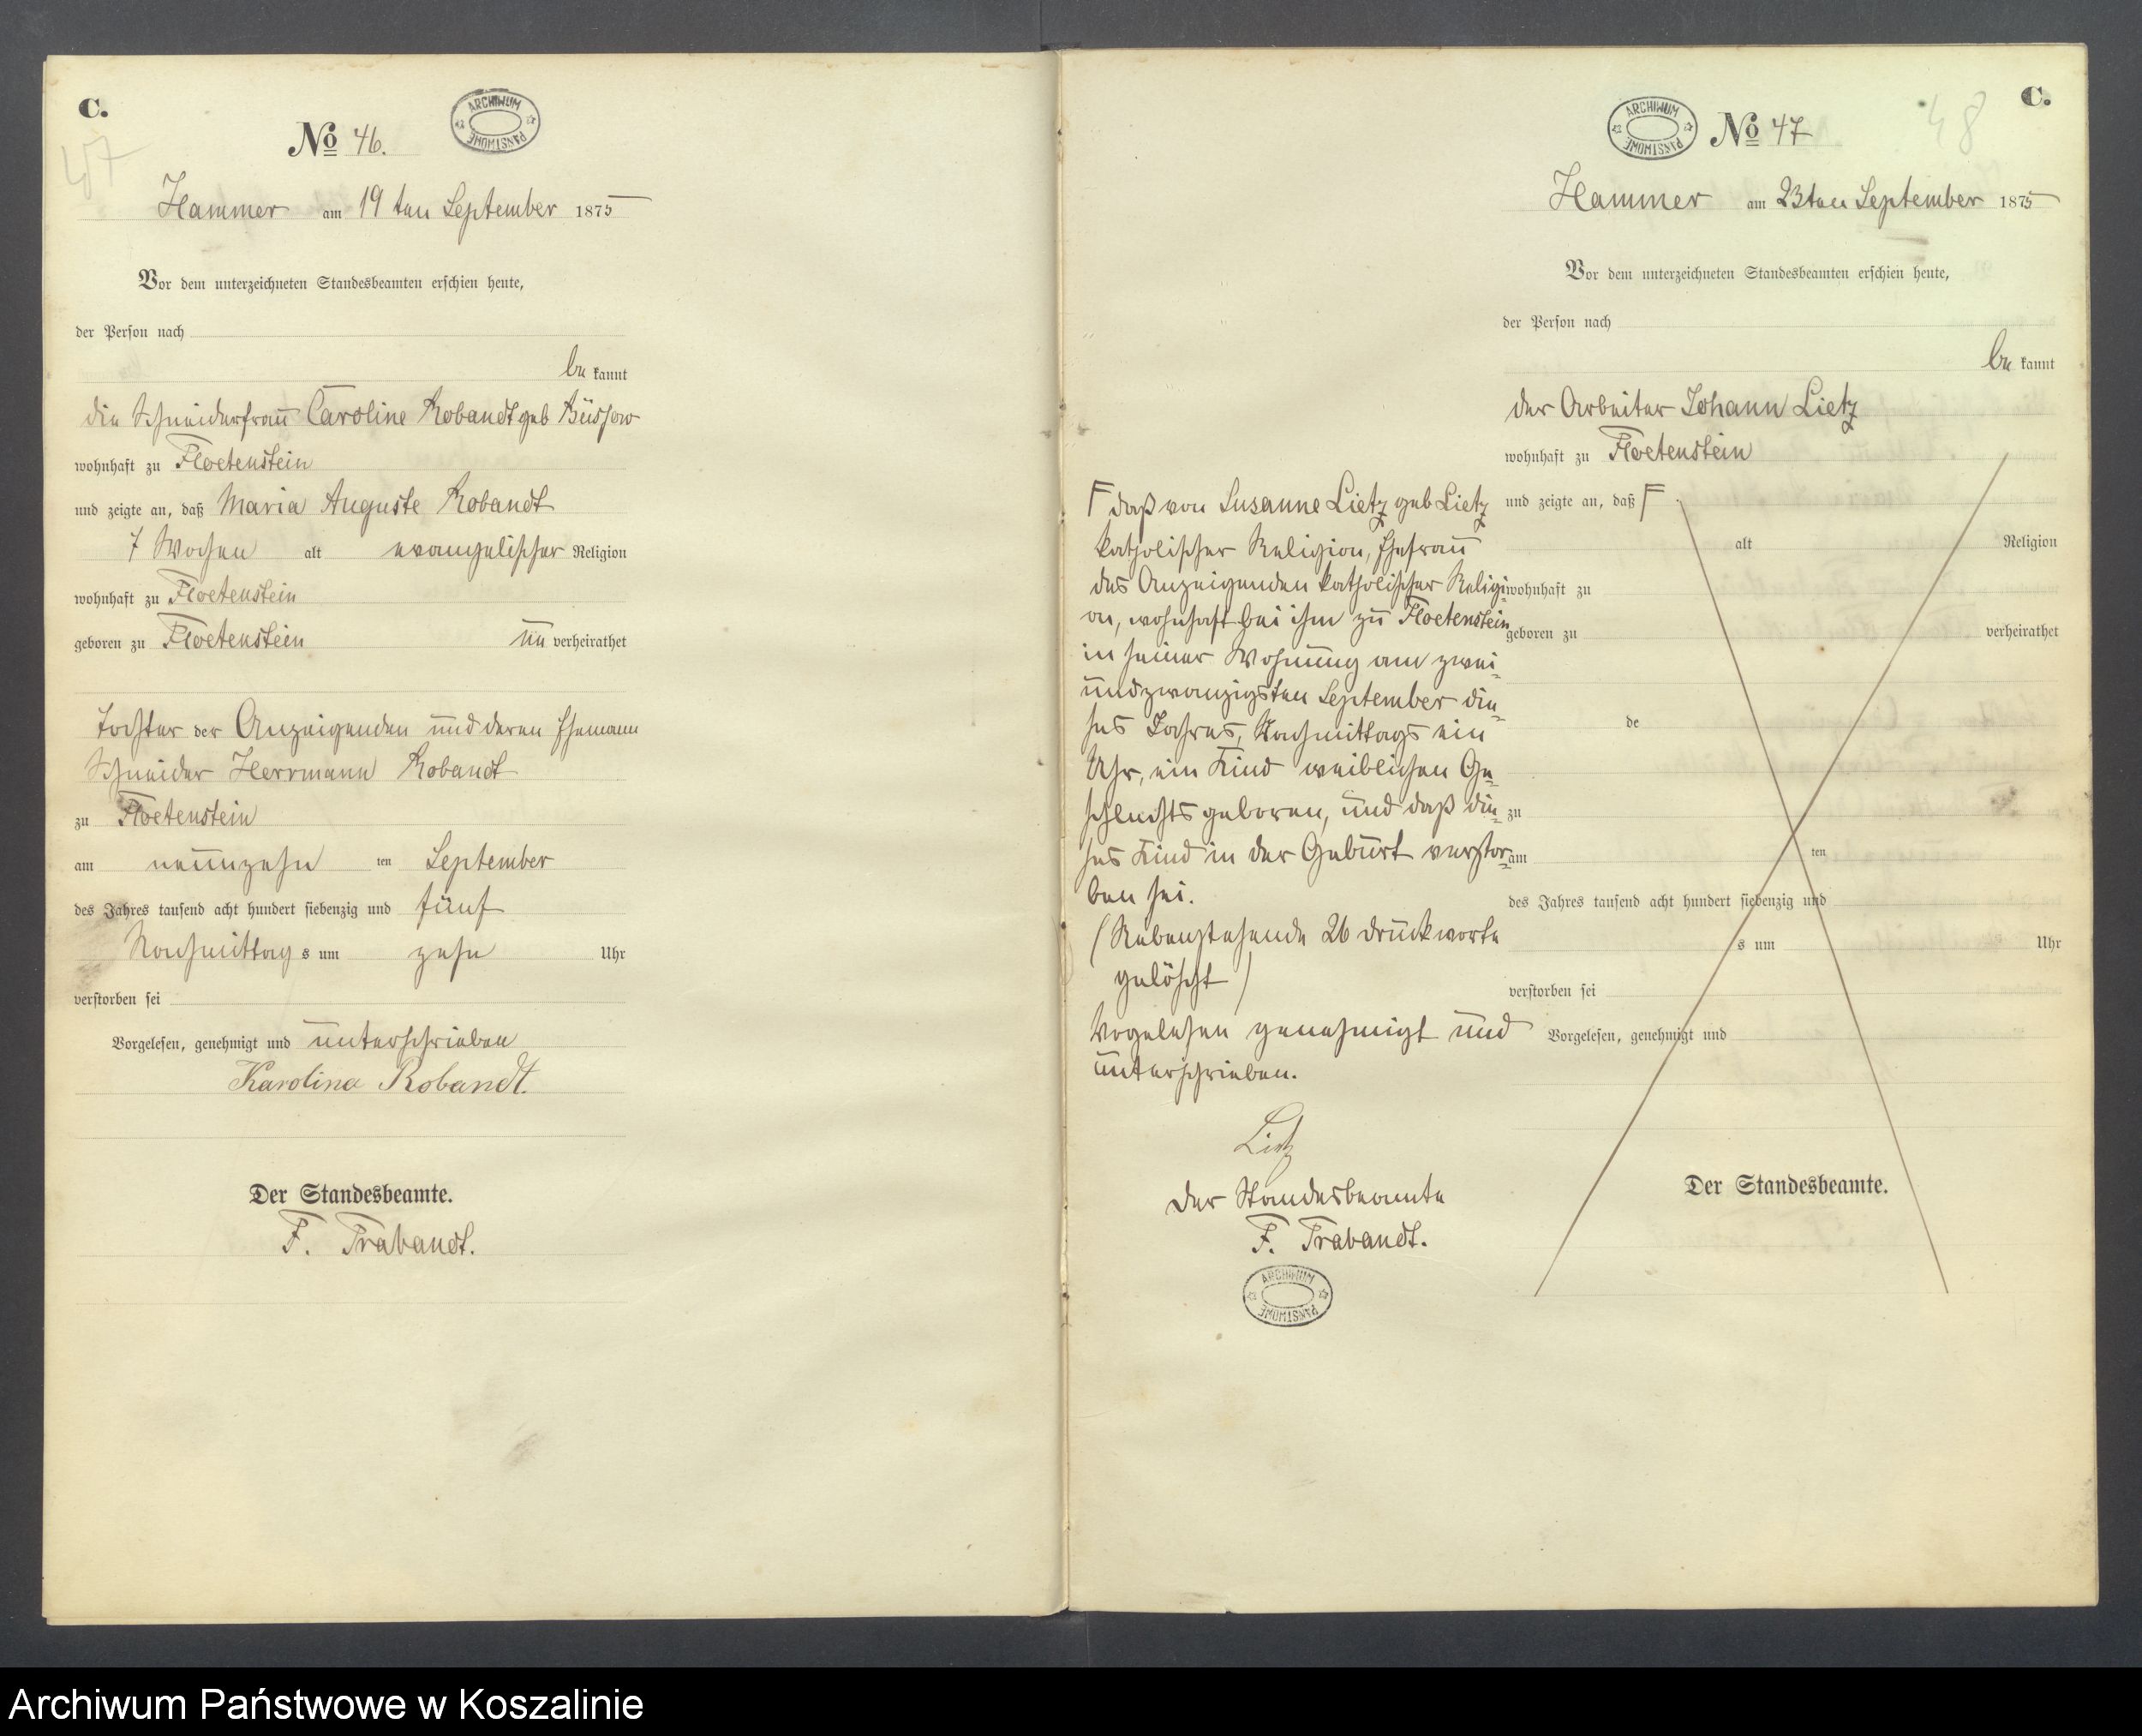 C.
47
No 46.
ARCHIWUM PAŃSTWOWE
Hammer am 19ten September 1875
Vor dem unterzeichneten Standesbeamten erschien heute,
der Person nach
be kannt
die Schneiderfrau Caroline Robandt geb Büssow
wohnhaft zu Floetenstein
und zeigte an, daß Maria Auguste Robandt
7 Wochen alt evangelischer Religion
wohnhaft zu Floetenstein
geboren zu Floetenstein un verheirathet
Tochter der Anzeigenden und deren Ehemann
Schneider Herrmann Robandt
zu Floetenstein
am neunzehn ten September
des Jahres tausend acht hundert siebenzig und fünf
Nachmittag s um zehn Uhr
verstorben sei
Vorgelesen, genehmigt und unterschrieben
Karolina Robandt.
Der Standesbeamte.
F. Trabandt.
C.
48
ARCHIWUM PAŃSTWOWE
No 47
Hammer am 23ten September 1875
Vor dem unterzeichneten Standesbeamten erschien heute,
der Person nach
be kannt
der Arbeiter Johann Lietz
wohnhaft zu Floetenstein
und zeigte an, daß F
alt Religion
wohnhaft zu
geboren zu verheirathet
de
zu
am ten
des Jahres tausend acht hundert siebenzig und
s um Uhr
verstorben sei
Vorgelesen, genehmigt und
Der Standesbeamte.
F daß von Susanne Lietz geb Lietz
katholischer Religion, Ehefrau
des Anzeigenden katholischer Religi-
on, wohnhaft bei ihm zu Floetenstein
in seiner Wohnung am zwei-
undzwanzigsten September die-
ses Jahres, Nachmittags ein
Uhr, ein Kind weiblichen Ge-
schlechts geboren, und daß die-
ses Kind in der Geburt verstor-
ben sei.
(Nebenstehende 26 Druckworte
gelöscht)
Vogelesen genehmigt und
unterschrieben.
Lietz
Der Standesbeamte
F. Trabandt.
ARCHIWUM PAŃSTWOWE
Archiwum Państwowe w Koszalinie